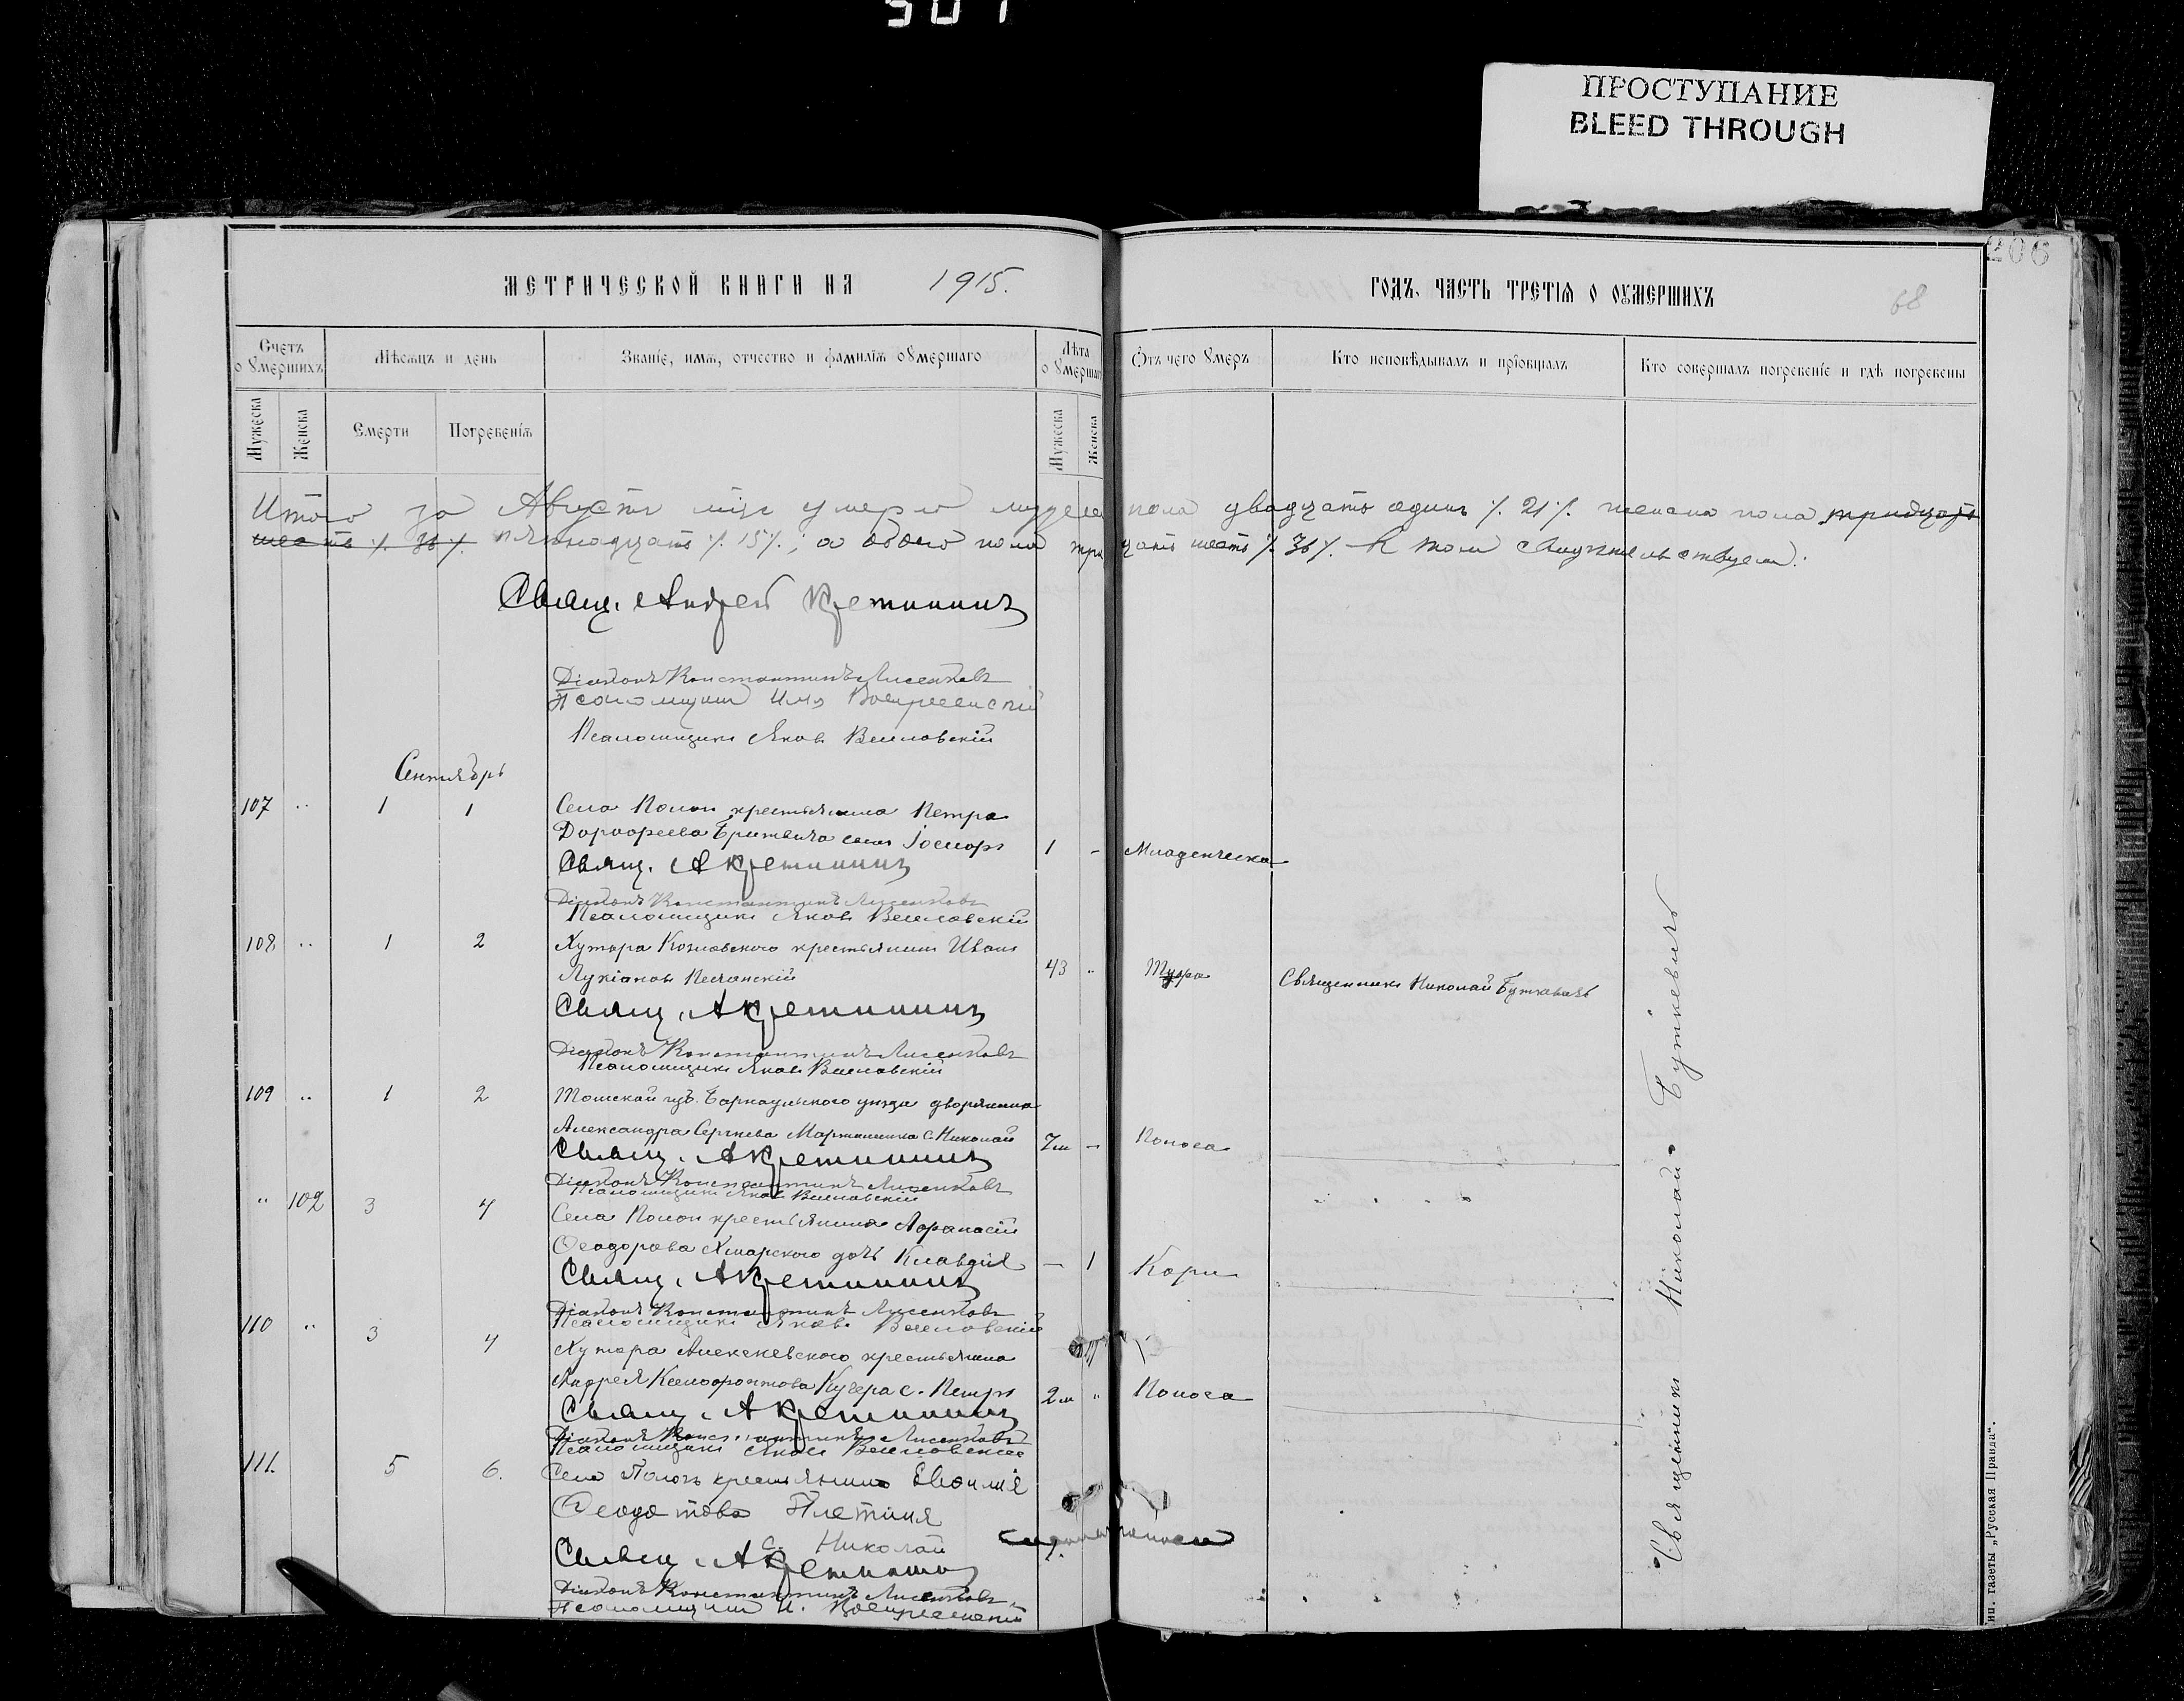 507
ПРОСТУПАНИЕ
BLEED THROUGH
206
МЕТРИЧЕСКОЙ КНИГИ НА 1915.
ГОДЪ, ЧАСТЬ ТРЕТІЯ О ОУМЕРШИХЪ
68
Счетъ о умершихъ
Мѣсяцъ и день
Званіе, имя, отчество и фамилія оумершаго
Лѣта оумершаго
Отъ чего умеръ
Кто исповѣдывалъ и пріобщалъ
Кто совершалъ погребеніе и гдѣ погребены
Мужеска
Женска
Смерти
Погребенія
Мужеска
Женска
Итого за Августъ м-цъ умерло мужска пола двадцать одинъ /. 21 /. женска пола тридцать
шесть /. 36 /. пятнадцать /. 15 /.; а обоего пола тридцать шесть /. 36 /.
Свящ. Андрей Кретининъ
Діаконъ Константинъ Лисенковъ
Псаломщикъ Воскресенскій
Псаломщикъ Яковъ Веселовскій
Сентябрь
107 " 1 1 Села Пологи крестьянина Петра
Дорофеева сынъ 1 - Младенческая
Свящ. А Кретининъ
Діаконъ Константинъ Лисенковъ
Псаломщикъ Яковъ Веселовскій
108 " 1 2 Хутора Козловского крестьянинъ Иванъ
Лукіановъ 43 "
Священникъ Николай Буткевичъ
Свящ. А Кретининъ
Діаконъ Константинъ Лисенковъ
Псаломщикъ Яковъ Веселовскій
109 " 1 2 Томской губ. Барнаульского уѣзда дворянина
Александра Сергѣева с. Николай 7м - Поноса
Свящ. А Кретининъ
Діаконъ Константинъ Лисенковъ
Псаломщикъ Яковъ Веселовскій
" 102 3 4 Села Пологи крестьянина Афанасія
Ѳеодорова Хмарского дочь Клавдія — 1 Кори
Свящ. А Кретининъ
Діаконъ Константинъ Лисенковъ
Псаломщикъ Яковъ Веселовскій
110 " 3 4 Хутора Алексѣевского крестьянина
Андрея Ксенофонтова Кучера с. Петръ 2м " Поноса
Свящ. А Кретининъ
Діаконъ Константинъ Лисенковъ
Псаломщикъ Яковъ Веселовскій
111. 5 6. Села Пологъ крестьянина
Ѳеодотова
с. Николай 1.
Свящ. А Кретининъ
Діаконъ Константинъ Лисенковъ
Псаломщикъ И. Воскресенскій
Священникъ Николай Буткевичъ
газеты „Русская Правда“.